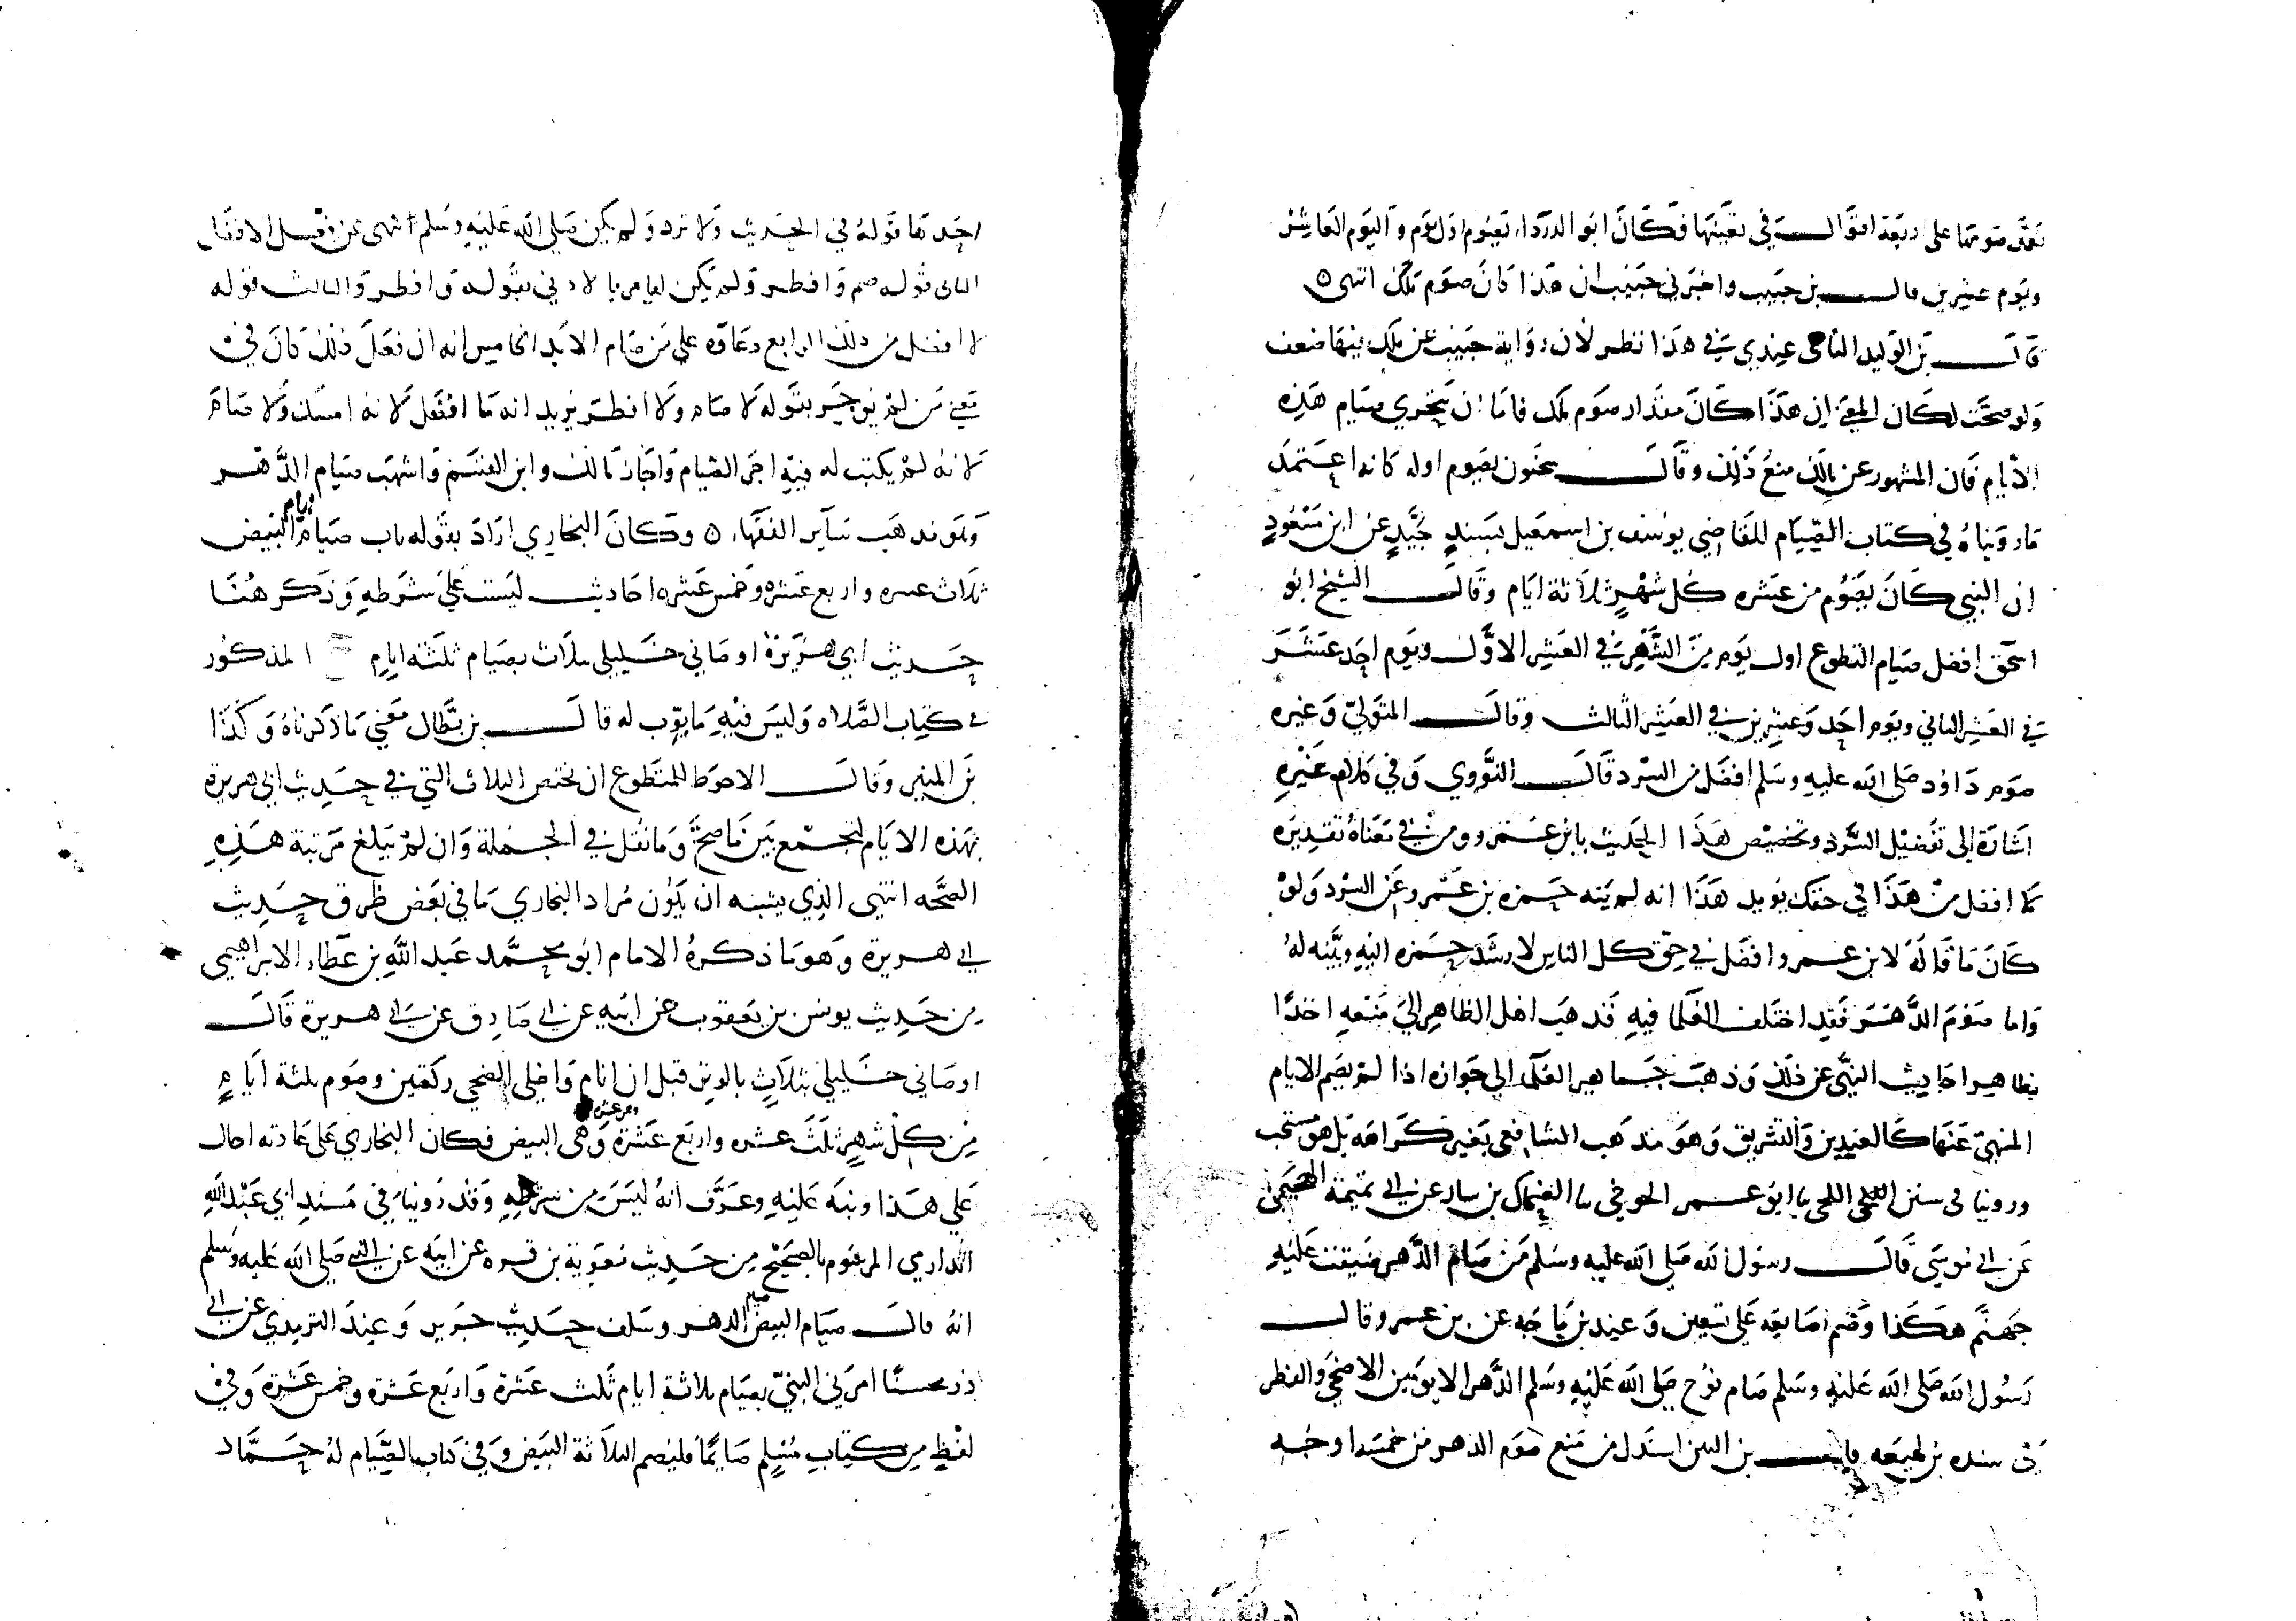 نفى صومها على اربعة اقوال في تعيينها فكان ابو الدرداء يصوم اول يوم واليوم العاشر
ويوم عشرين قال بن حبيب واخبرني حبيب ان هذا كان صوم ملك انتهى ٥
قال بن الوليد الباجي عندي في هذا نظر لان رواية حبيب عن ملك فيها ضعف
ولو صحت لكان المعنى ان هذا كان مقدار صوم ملك فاما ان يتحرى صيام هذه
الايام فان المشهور عن ملك منع ذلك وقال سحنون يصوم اوله كانه اعتمد
مارويناه في كتاب الصيام للقاضي يوسف بن اسمعيل بسند جيد عن ابن مسعود
ان النبي كان يصوم من عشره كل شهر ثلاثة ايام وقال الشيخ ابو
اسحق افضل صيام التطوع اول يوم من الشهر في العشر الاول ويوم احد عشر
في العشر الثاني ويوم احد وعشرين في العشر الثالث وقال المتولي وغيره
صوم داود صلى الله عليه وسلم افضل من السرد قال النووي وفي كلام غيره
اشارة الى تفضيل السرد وتخصيص هذا الحديث بابن عمرو ومن في معناه تقديره
لا افضل من هذا في حقك يويد هذا انه لم ينه حمزه بن عمرو عن السرد ولو
كان ما قاله لابن عمرو افضل في حق كل الناس لارشد حمزه اليه وبينه له
واما صوم الدهر فقد اختلف العلما فيه فذهب اهل الظاهر الى منعه اخذا
بظاهر احاديث النهي عن ذلك وذهب جماهير العلما الى جوازه اذا لم يصم الايام
المنهي عنها كالعيدين والتشريق وهو مذهب الشافعي بغير كراهه بل هو مستحب
وروينا في سنن الكجي ثنا ابو عمر الحوضي ثنا الضحاك بن يسار عن ابي تميمة الهجيمى
عن ابي موسى قال رسول الله صلى الله عليه وسلم من صام الدهر ضيقت عليه
جهنم هكذا وضم اصابعه على تسعين وعند بن ماجه عن بن عمرو قال
رسول الله صلى الله عليه وسلم صام نوح صلى الله عليه وسلم الدهر الا يومين الاضحى والفطر
في سنده بن لهيعه قال بن التين استدل من منع صوم الدهر من خمسه اوجه
احدها قوله في الحديث ولا ترد ولم يكن صلى الله عليه وسلم انهى عن فعل الا فضل
الثاني قوله صم وافطر ولم يكن ليامر بالادني بقوله وافطر والثالث قوله
لا افضل من ذلك الرابع دعاوه علي من صام الابد الخامس انه ان فعل ذلك كان في
معني من لم يوجر بقوله لا صام ولا افطر يريد انه ما افطر لانه امسك ولا صام
لانه لم يكتب له فيه اجر الصيام واجاز مالك وابن القسم واشهب صيام الدهر
وهو مذهب ساير الفقها ٥ وكان البخاري اراد بقوله باب صيام ايام البيض
ثلاث عشره واربع عشره وخمس عشره احاديث ليست علي شرطه وذكر هنا
حديث ابي هريرة اوصاني خليلي بثلاث بصيام ثلثه ايام المذكور
في كتاب الصلاه وليس فيه ما يوب له قال بن بطال معني ما ذكرناه وكذا
بن المنير وقال الاحوط للمتطوع ان يختص الثلاث التي في حديث ابي هريرة
بهذه الايام لتجمع بين ما صح وما نقل في الجملة وان لم يبلغ مرتبة هذه
الصحه انتهى الذي يشبه ان يكون مراد البخاري ما في بعض طرق حديث
ابي هريرة وهو ما ذكره الامام ابو محمد عبد الله بن عطاء الابراهيمي
من حديث يونس بن يعقوب عن ابيه عن ابي صادق عن ابي هريرة قال
اوصاني خليلي بثلاث بالوتر قبل ان انام واصلي الضحي ركعتين وصوم ثلثة ايام
من كل شهر ثلث عشره واربع عشرة وخمس عشره وهي البيض فكان البخاري على عادته احال
علي هذا ونبه عليه وعرف انه ليس من شرطه وقد روينا في مسند ابي عبد الله
الدارمي المرسوم بالصحيح من حديث معوية بن قره عن ابيه عن النبي صلى الله عليه وسلم
انه قال صيام البيض صيام الدهر وسلف حديث جرير وعند الترمدي عن ابي
ذر محسنا امرني النبي بصيام ثلاثة ايام ثلث عشرة واربع عشرة وخمس عشرة وفي
لفظ من كتاب مسلم صايما فليصم الثلاثة البيض وفي كتاب الصيام له حماد